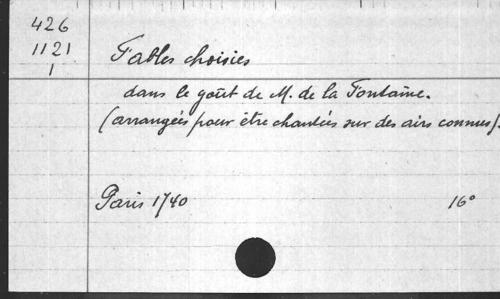 426
1121
1
Fables choisies
dans le goût de M. de la Fontaine.
(arrangées pour être chantées sur des airs connus).
Paris 1740 16°